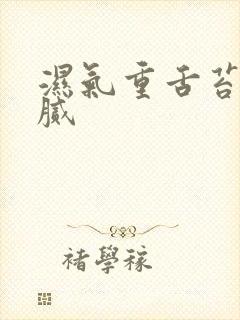 濕氣重舌苔
膩
褚學稼